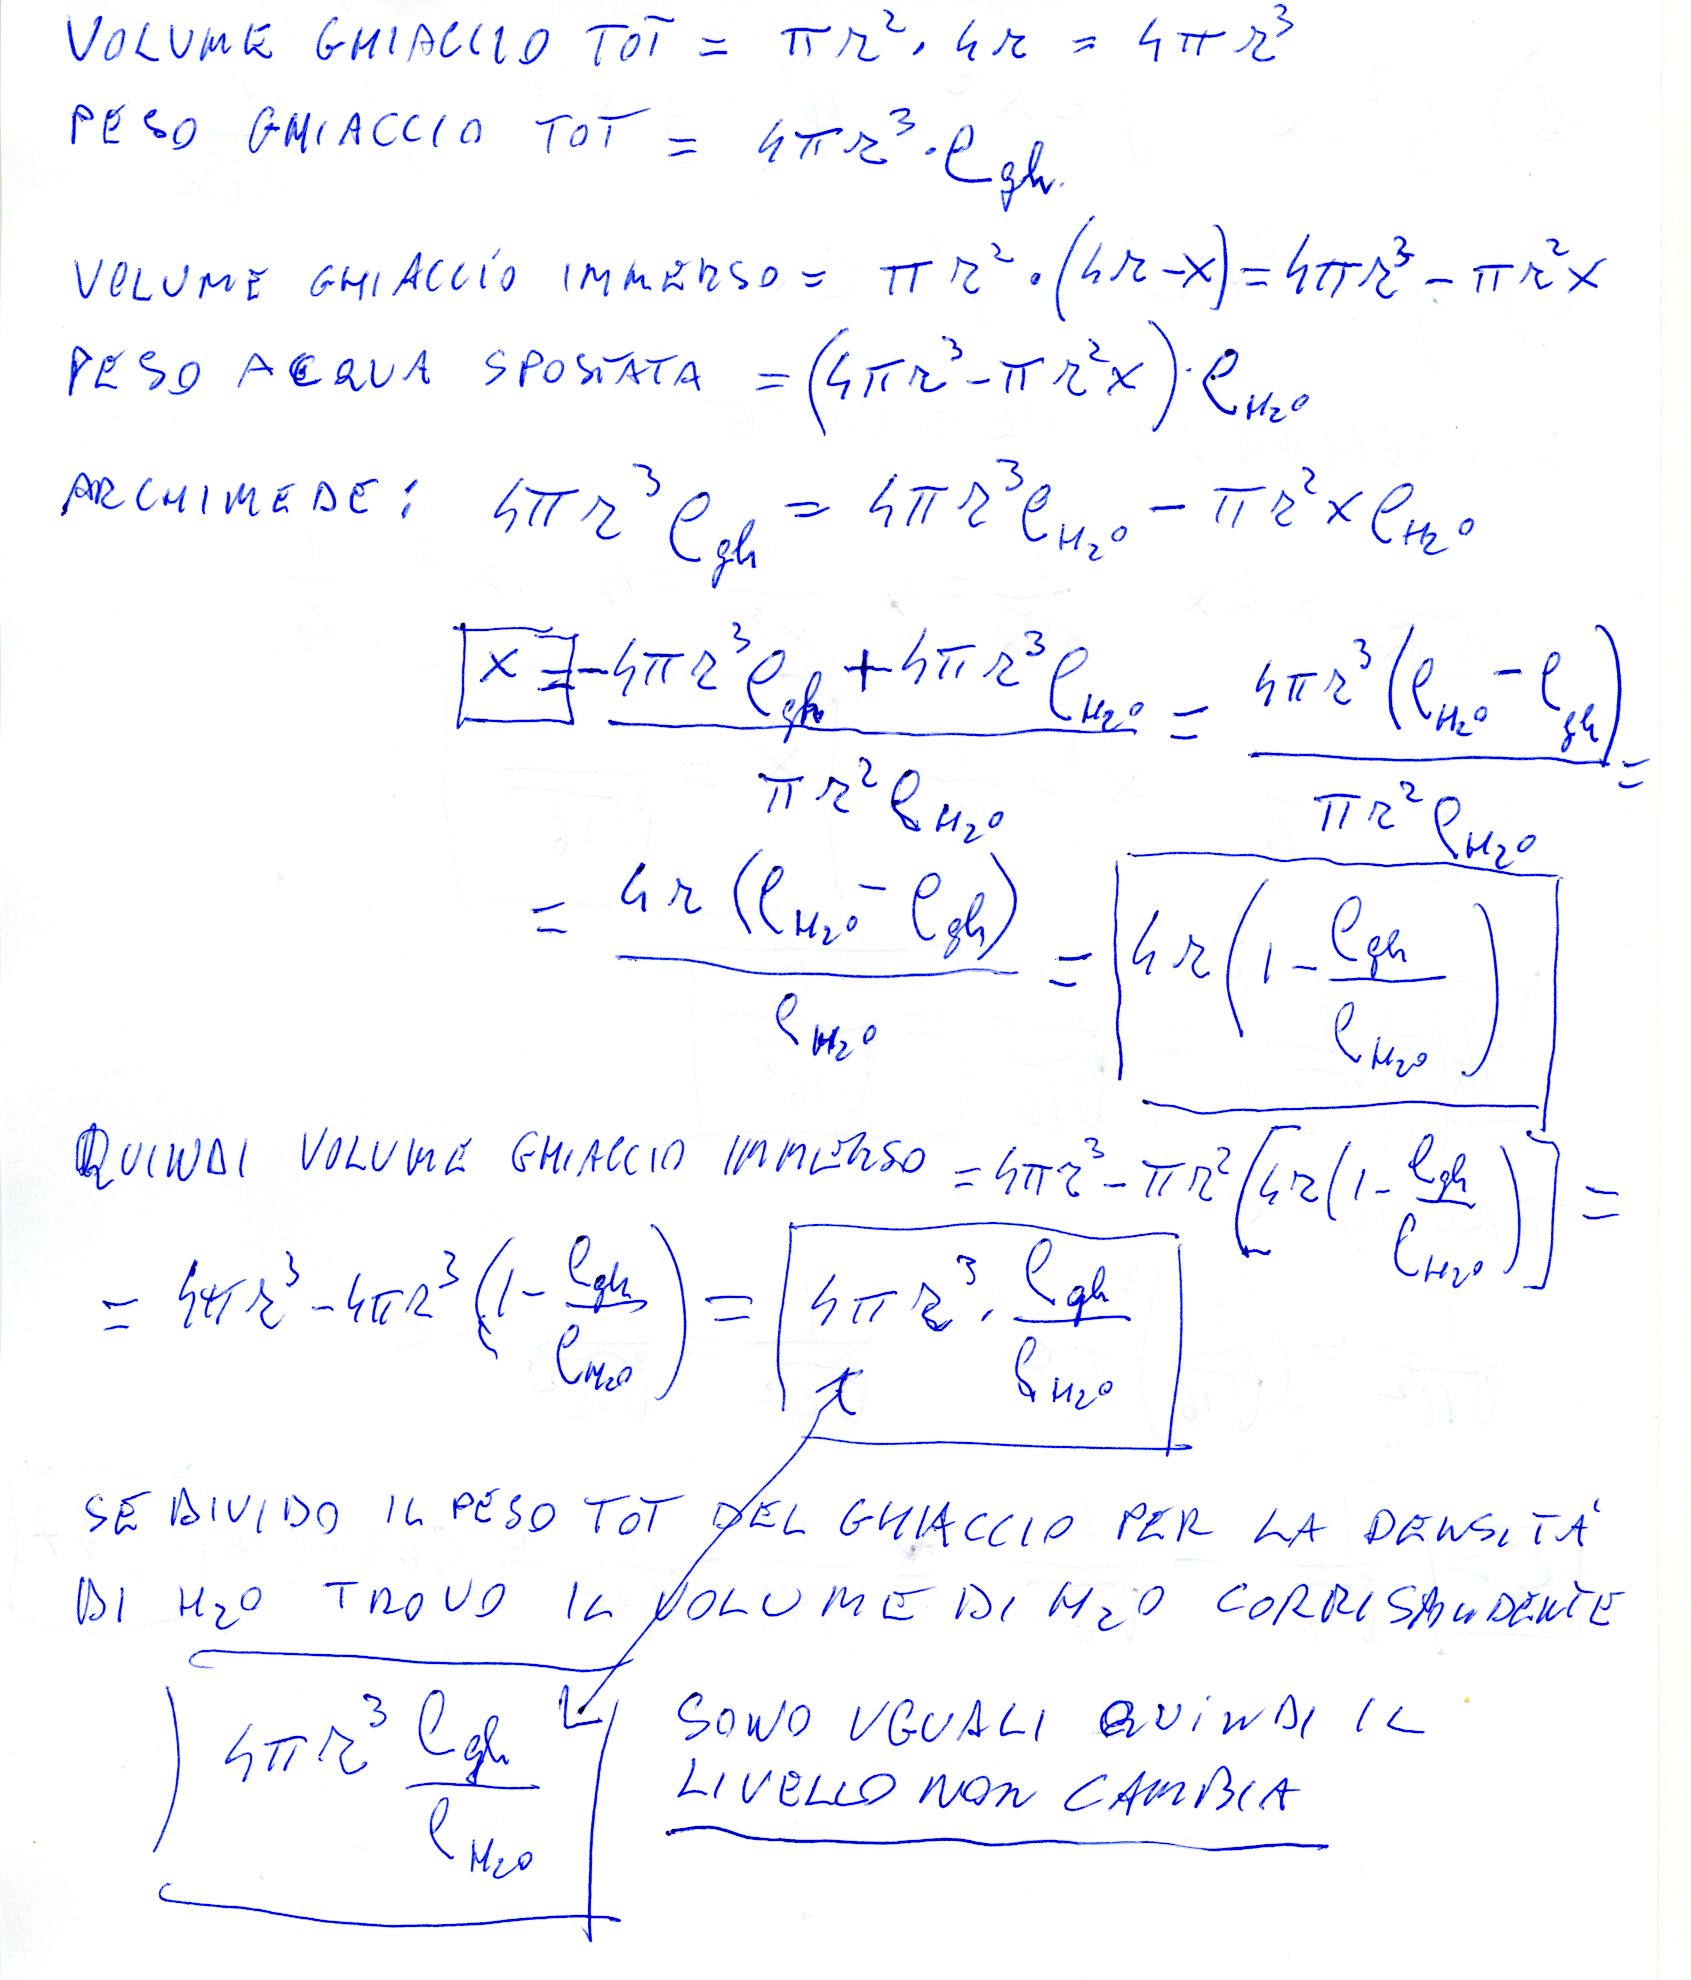 VOLUME GHIACCIO TOT = πr²·4r = 4πr³
PESO GHIACCIO TOT = 4πr³·ρgh.
VOLUME GHIACCIO IMMERSO = πr²·(4r-x) = 4πr³ - πr²x
PESO ACQUA SPOSTATA = (4πr³ - πr²x)·ρH₂O
ARCHIMEDE: 4πr³ρgh = 4πr³ρH₂O - πr²xρH₂O
x = (-4πr³ρgh + 4πr³ρH₂O) / (πr²ρH₂O) = 4πr³(ρH₂O - ρgh) / (πr²ρH₂O) =
= 4r(ρH₂O - ρgh) / ρH₂O = 4r(1 - ρgh/ρH₂O)
QUINDI VOLUME GHIACCIO IMMERSO = 4πr³ - πr²[4r(1 - ρgh/ρH₂O)] =
= 4πr³ - 4πr³(1 - ρgh/ρH₂O) = 4πr³·ρgh/ρH₂O
SE DIVIDO IL PESO TOT DEL GHIACCIO PER LA DENSITÁ
DI H₂O TROVO IL VOLUME DI H₂O CORRISPONDENTE
4πr³ ρgh/ρH₂O SONO UGUALI QUINDI IL
LIVELLO NON CAMBIA